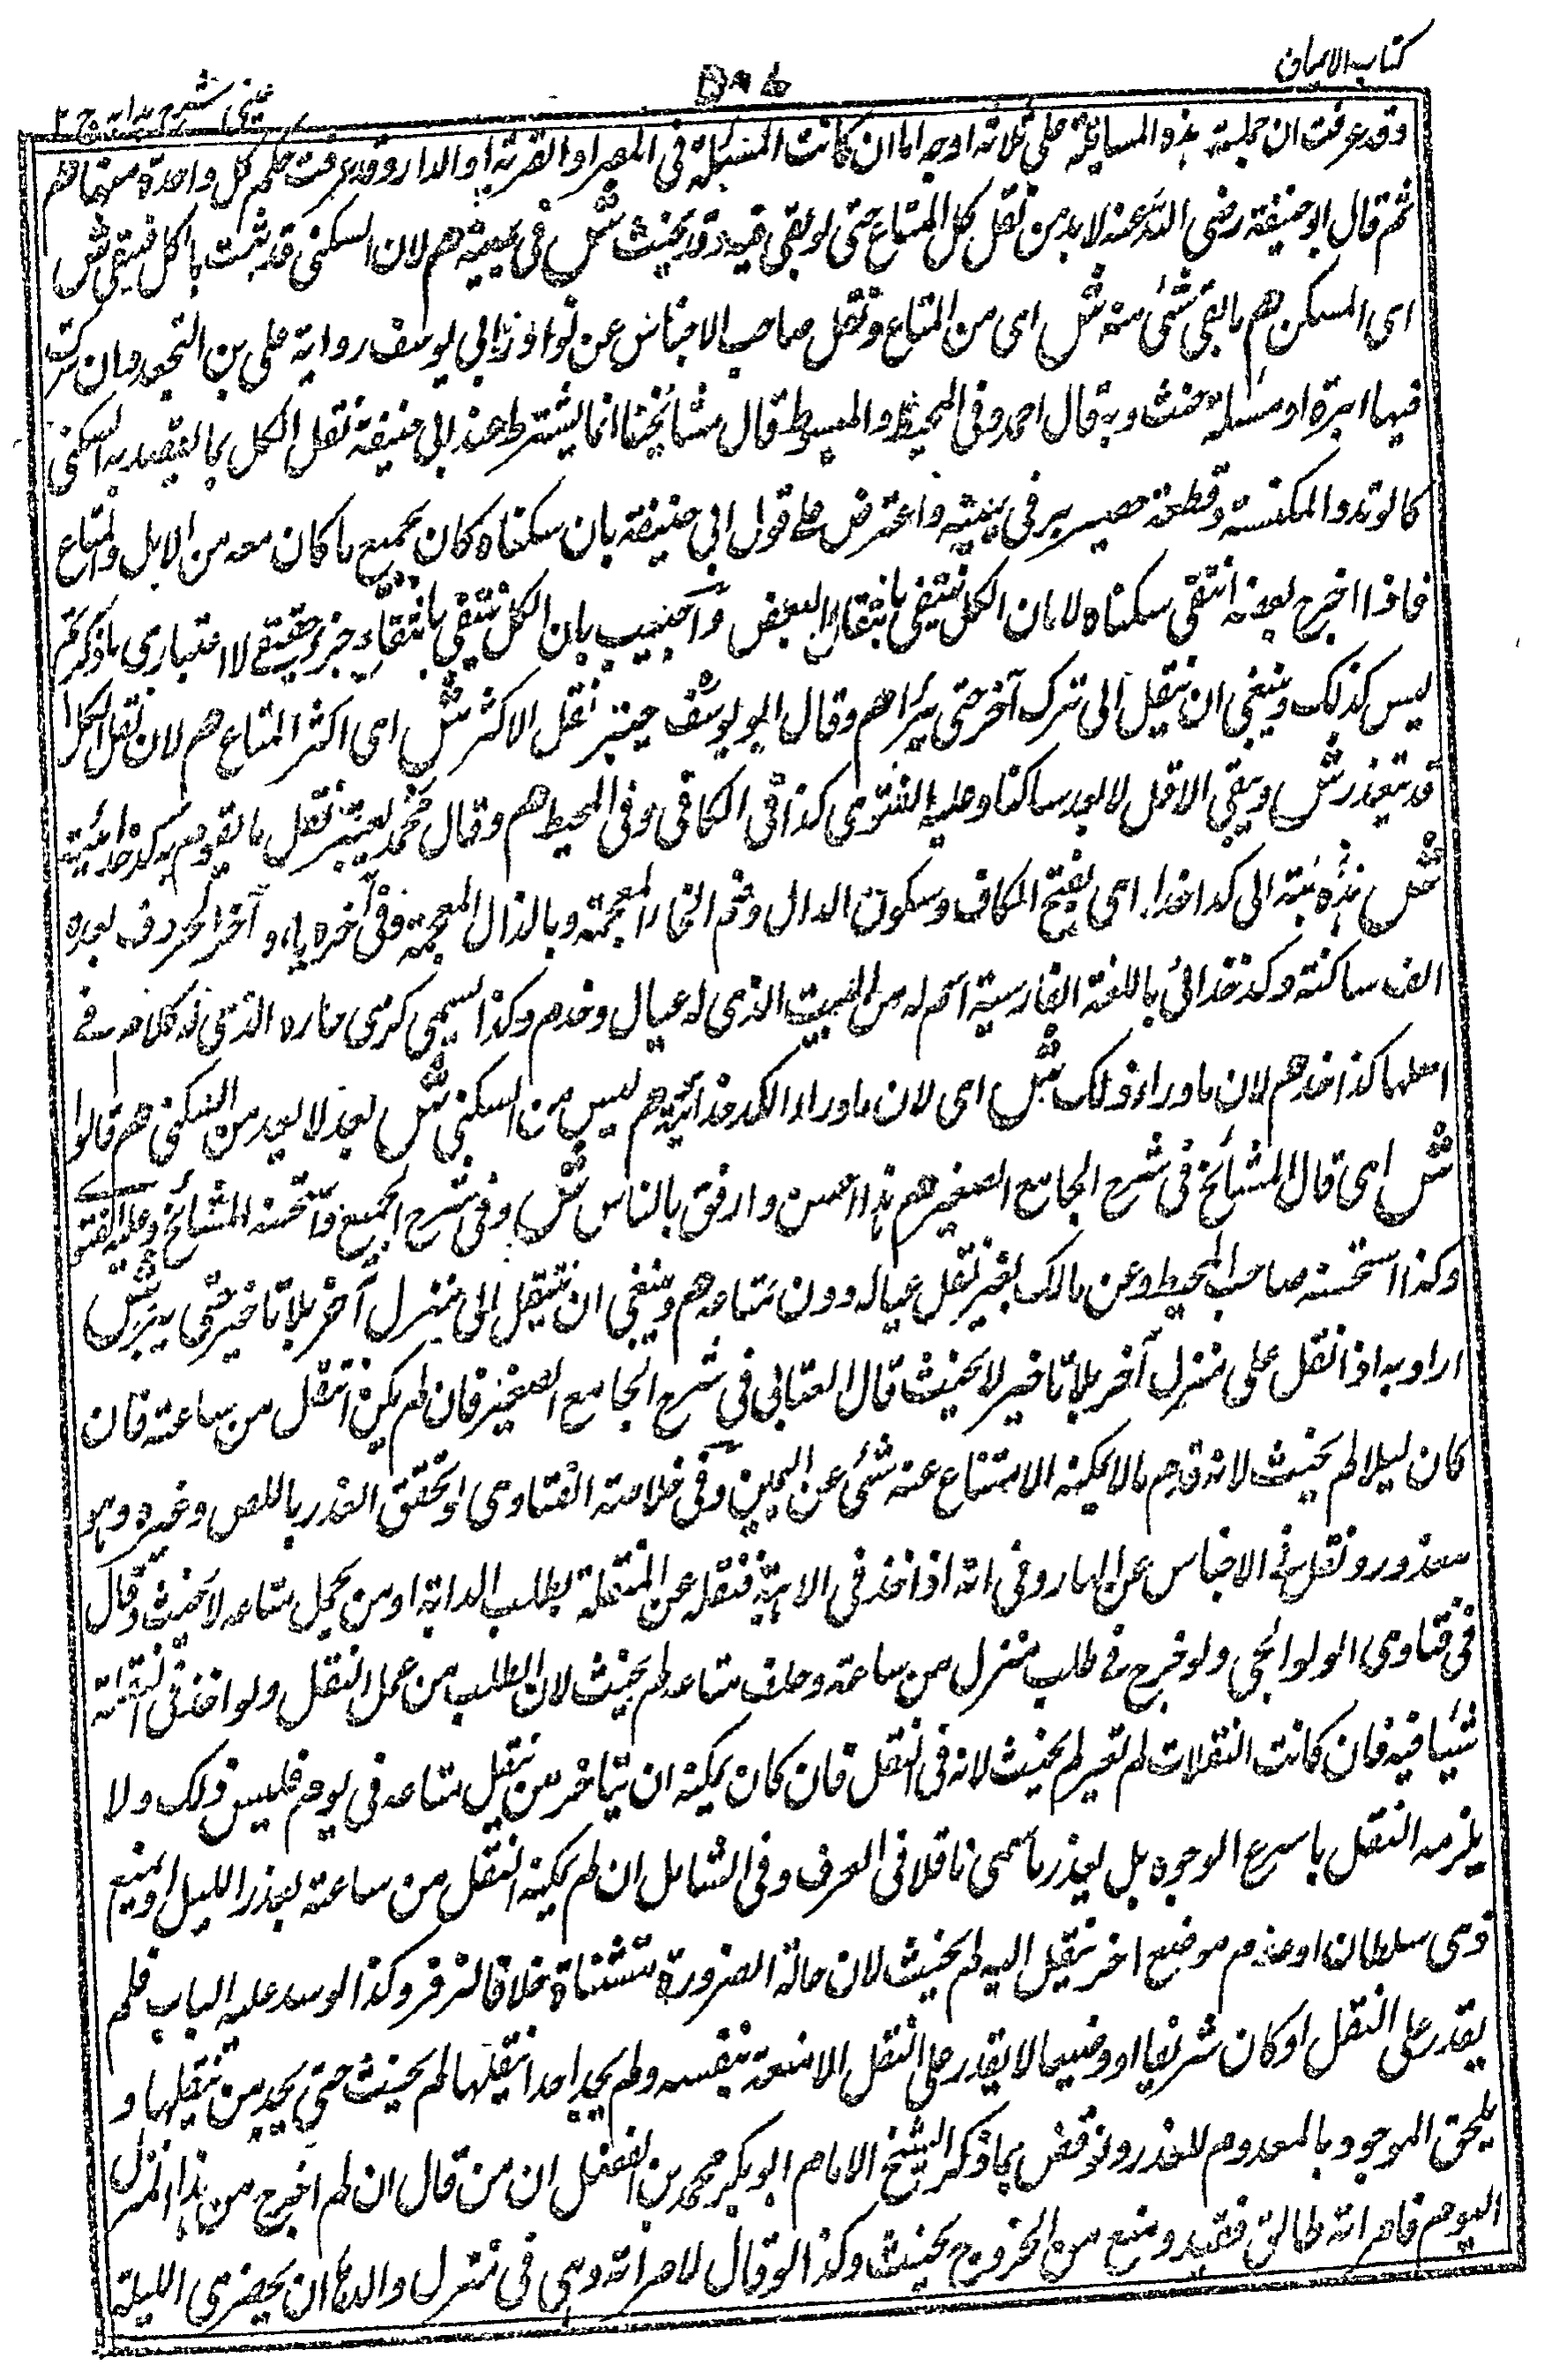 كتاب الايمان
عينى شرح هداية ج ٢
وقد عرفت ان جملية هذه المسايلة على ثلاثة اوجه اما ان كانت المسئلة فى المصر او القرية او الدار وقد عرفت حكم كل واحدة منهما هم
ثم قال ابو حنيفة رضى الله عنه لا بد من نقل كل المتاع حتى لو بقى فيه وتد يحنث ش فى يمينه هم لان السكنى قد ثبت بالكل فيبقى ش
اى السكن هم ما بقى شئ منه ش اى من المتاع ونقل صاحب الاجناس عن نوادر ابى يوسف رواية على بن الجعد وان ترك
فيها ابرة او مسلة حنث وبه قال احمد وفى المحيط والمبسوط قال مشائخنا انما يشترط عند ابى حنيفة نقل الكل مما يقصد به السكنى
كالوتد والمكنسة وقطعة حصير يبر فى يمينه واعترض على قول ابى حنيفة بان سكناه كان بجميع ما كان معه من الاهل والمتاع
فاذا اخرج بعضه انتفى سكناه لان الكل ينتفى بانتفاء البعض وأجيب بان الكل ينتفى بانتفاء جزء حقيقى لا اعتبارى ما ذكرتم
ليس كذلك وينبغى ان ينتقل الى ترك آخر حتى يبرا هم وقال ابو يوسف يعتبر نقل الاكثر ش اى اكثر المتاع هم لان نقل الكل
قد يتعذر ش ويبقى الاقل لا يعد ساكنا وعليه الفتوى كذا فى الكافى وفى المحيط هم وقال محمد يعتبر نقل ما يقوم به كدخدائية
ش نسبة الى كداخدا اى بفتح الكاف وسكون الدال وضم الخاء المعجمة وبالذال المعجمة وفى آخره ياء و آخر الحروف بعده
الف ساكنة وكدخدائى باللغة الفارسية اسم له من البيت الذى له عيال وخدم وكذا يسمى كرسى مناره الذى له كلامه فے
اسلها كذا خذهم لان ما وراء ذلك ش اى لان ما وراء الكدخدائية هم ليس من السكنى ش يعد لا يعد من السكنى هم قالوا
ش اى قال المشائخ فى شرح الجامع الصغير هم هذا احسن وارفق بالناس ش وفى شرح المجمع واستحسنه المشائخ وعليه الفتوے
وكذا استحسنه صاحب المحيط وعن مالك يعتبر نقل عياله دون متاعه هم وينبغى ان ينتقل الى منزل آخر بلا تاخير حتى يبر ش
اراد به اذا نقل على منزل آخر بلا تاخير لا يحنث قال العتابى فى شرح الجامع الصغير فان لم يكن انتقل من ساعته فان
كان ليلا لم يحنث لانه قدم ما لا يمكنه الامتناع عنه شئ عن اليمين وفى خلاصة الفتاوى او تحقق العذر باللص وغيره وهو
معذور ونقل فے الاجناس عن الهارونى انه اذا اخذ فى الاهبة فنقله عن المنتقلة بطلب الدابة او من يحمل متاعه لا يحنث وقال
فى فتاوى الولوالجى ولو خرج فے طلب منزل من ساعته وخلف متاعه لم يحنث لان الطلب من عمل النقل ولو اخذ فى النقلة
شيئا فيه فان كانت النقلات لم تعسر لم يحنث لانه فى النقل فان كان يمكنه ان يتاخر من ينقل متاعه فى يوم فليس ذلك ولا
يلزمه النقل باسرع الوجوه بل بعذر ما سمى ناقلا فى العرف وفى الشامل ان لم يمكنه النقل من ساعته بعذر الليل او بمنع
ذى سلطان او عدم موضع اخر ينتقل اليه لم يحنث لان حالة الضرورة مستثناة خلافا لزفر وكذا لو سد عليه الباب فلم
يقدر على النقل او كان شريفا او وضيعا لا يقدر على النقل الامتعة بنفسه ولم يجد احدا ينقلها لم يحنث حتى يجد من ينقلها و
يلحق الموجود بالمعدوم للعذر ونوقض بما ذكر الشيخ الامام ابو بكر محمد بن الفضل ان من قال ان لم اخرج من هذا المنزل
اليوم فامراته طالق فقيد ومنع من الخروج يحنث وكذا لو قال لامراته وهى فى منزل والدها ان يحضرى الليلة